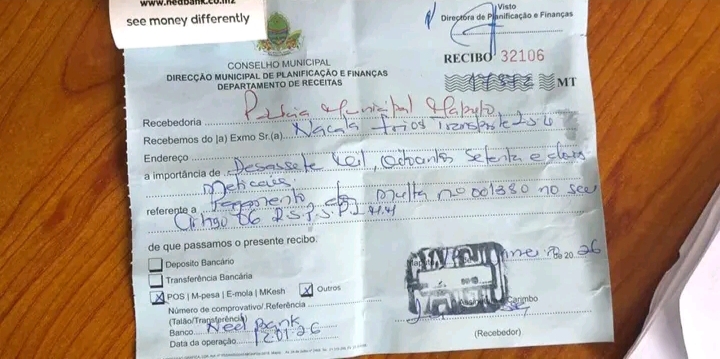 www.nedbank.co.mz
see money differently
Visto
Directora de Planificação e Finanças
CONSELHO MUNICIPAL
DIRECÇÃO MUNICIPAL DE PLANIFICAÇÃO E FINANÇAS
DEPARTAMENTO DE RECEITAS
RECIBO 32106
MT
Recebedoria Policia Municipal Maputo
Recebemos do |a) Exmo Sr.(a) Nacala Transporte
Endereço
a importância de Desassete Mil, Oitocentos Setenta e dois
Meticais
referente a Pagamento da multa nº 001380 no seu
Artigo 06
de que passamos o presente recibo.
Deposito Bancário
Transferência Bancária
X POS | M-pesa | E-mola | MKesh X Outros
Número de comprovativo/.Referência
(Talão/Tranferência)
Banco Ned Bank
Data da operação
de 20 26
Carimbo
(Recebedor)